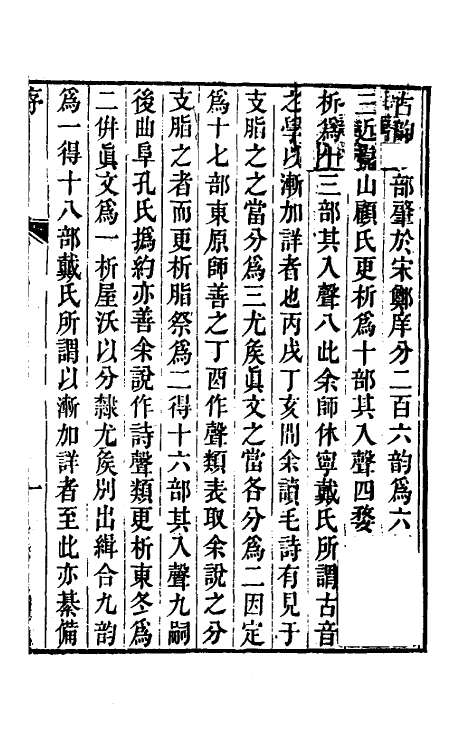 古韵　部肇於宋鄭庠分二百六韵爲六
三近崑山顧氏更析爲十部其入聲四婺
析爲十三部其入聲八此余師休寧戴氏所謂古音
之學以漸加詳者也丙戌丁亥閒余讀毛詩有見于
支脂之之當分爲三尤矦眞文之當各分爲二因定
爲十七部東原師善之丁酉作聲類表取余說之分
支脂之者而更析脂祭爲二得十六部其入聲九嗣
後曲阜孔氏撝約亦善余說作詩聲類更析東冬爲
二併眞文爲一析屋沃以分隸尤矦別出緝合九韵
爲一得十八部戴氏所謂以漸加詳者至此亦綦備
序
一